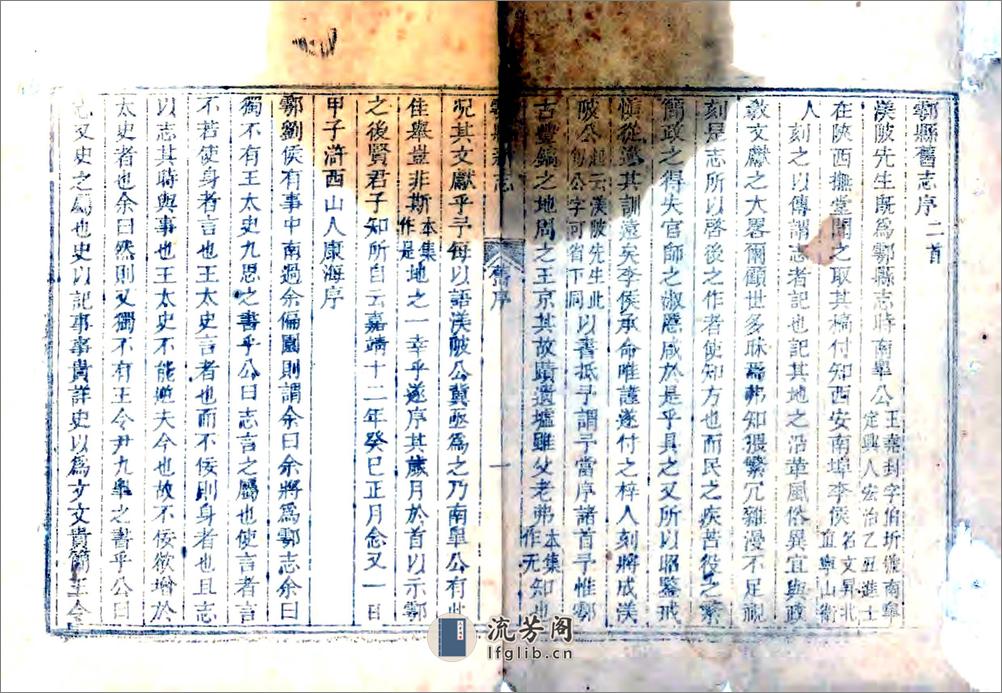 鄠縣舊志序二首
渼陂先生既爲鄠縣志時南皋公王堯封字伯圻儀南寧定興人宏治乙丑進士
在陝西撫臺聞之取其稿付知西安南埠李侯名文昇北直寧山衛
人刻之以傳謂志者記也記其地之沿革風俗異宜與政
敎文獻之大畧爾顧世多昧焉弗知猥繁冗雜漫不足視
刻是志所以啓後之作者使知方也而民之疾苦役之繁
簡政之得失官師之淑慝咸於是乎具之又所以昭鑒戒
愼從違其訓遠矣李侯承命唯謹遂付之梓人刻將成渼
陂公起云渼陂先生此句公字可省下同以書抵予謂予當序諸首予惟鄠
古豐鎬之地周之王京其故蹟遺墟雖父老弗本集作无知也
鄠縣新志 舊序 一
況其文獻乎予每以語渼陂公冀亟爲之乃南皋公有此
佳舉豈非斯本集作是地之一幸乎遂序其歲月於首以示鄠
之後賢君子知所自云嘉靖十二年癸巳正月念又一日
甲子滸西山人康海序
鄠劉侯有事中南過余偏園則謂余曰余將爲鄠志余曰
獨不有王太史九思之書乎公曰志言之屬也使言者言
不若使身者言也王太史言者也而不佞則身者也且志
以志其時與事也王太史不能逆夫今也故不佞欲增於
太史者也余曰然則又獨不有王令尹九皋之書乎公曰
志又史之屬也史以記事事貴詳史以爲文文貴簡王令
流芳阁
lfglib.cn